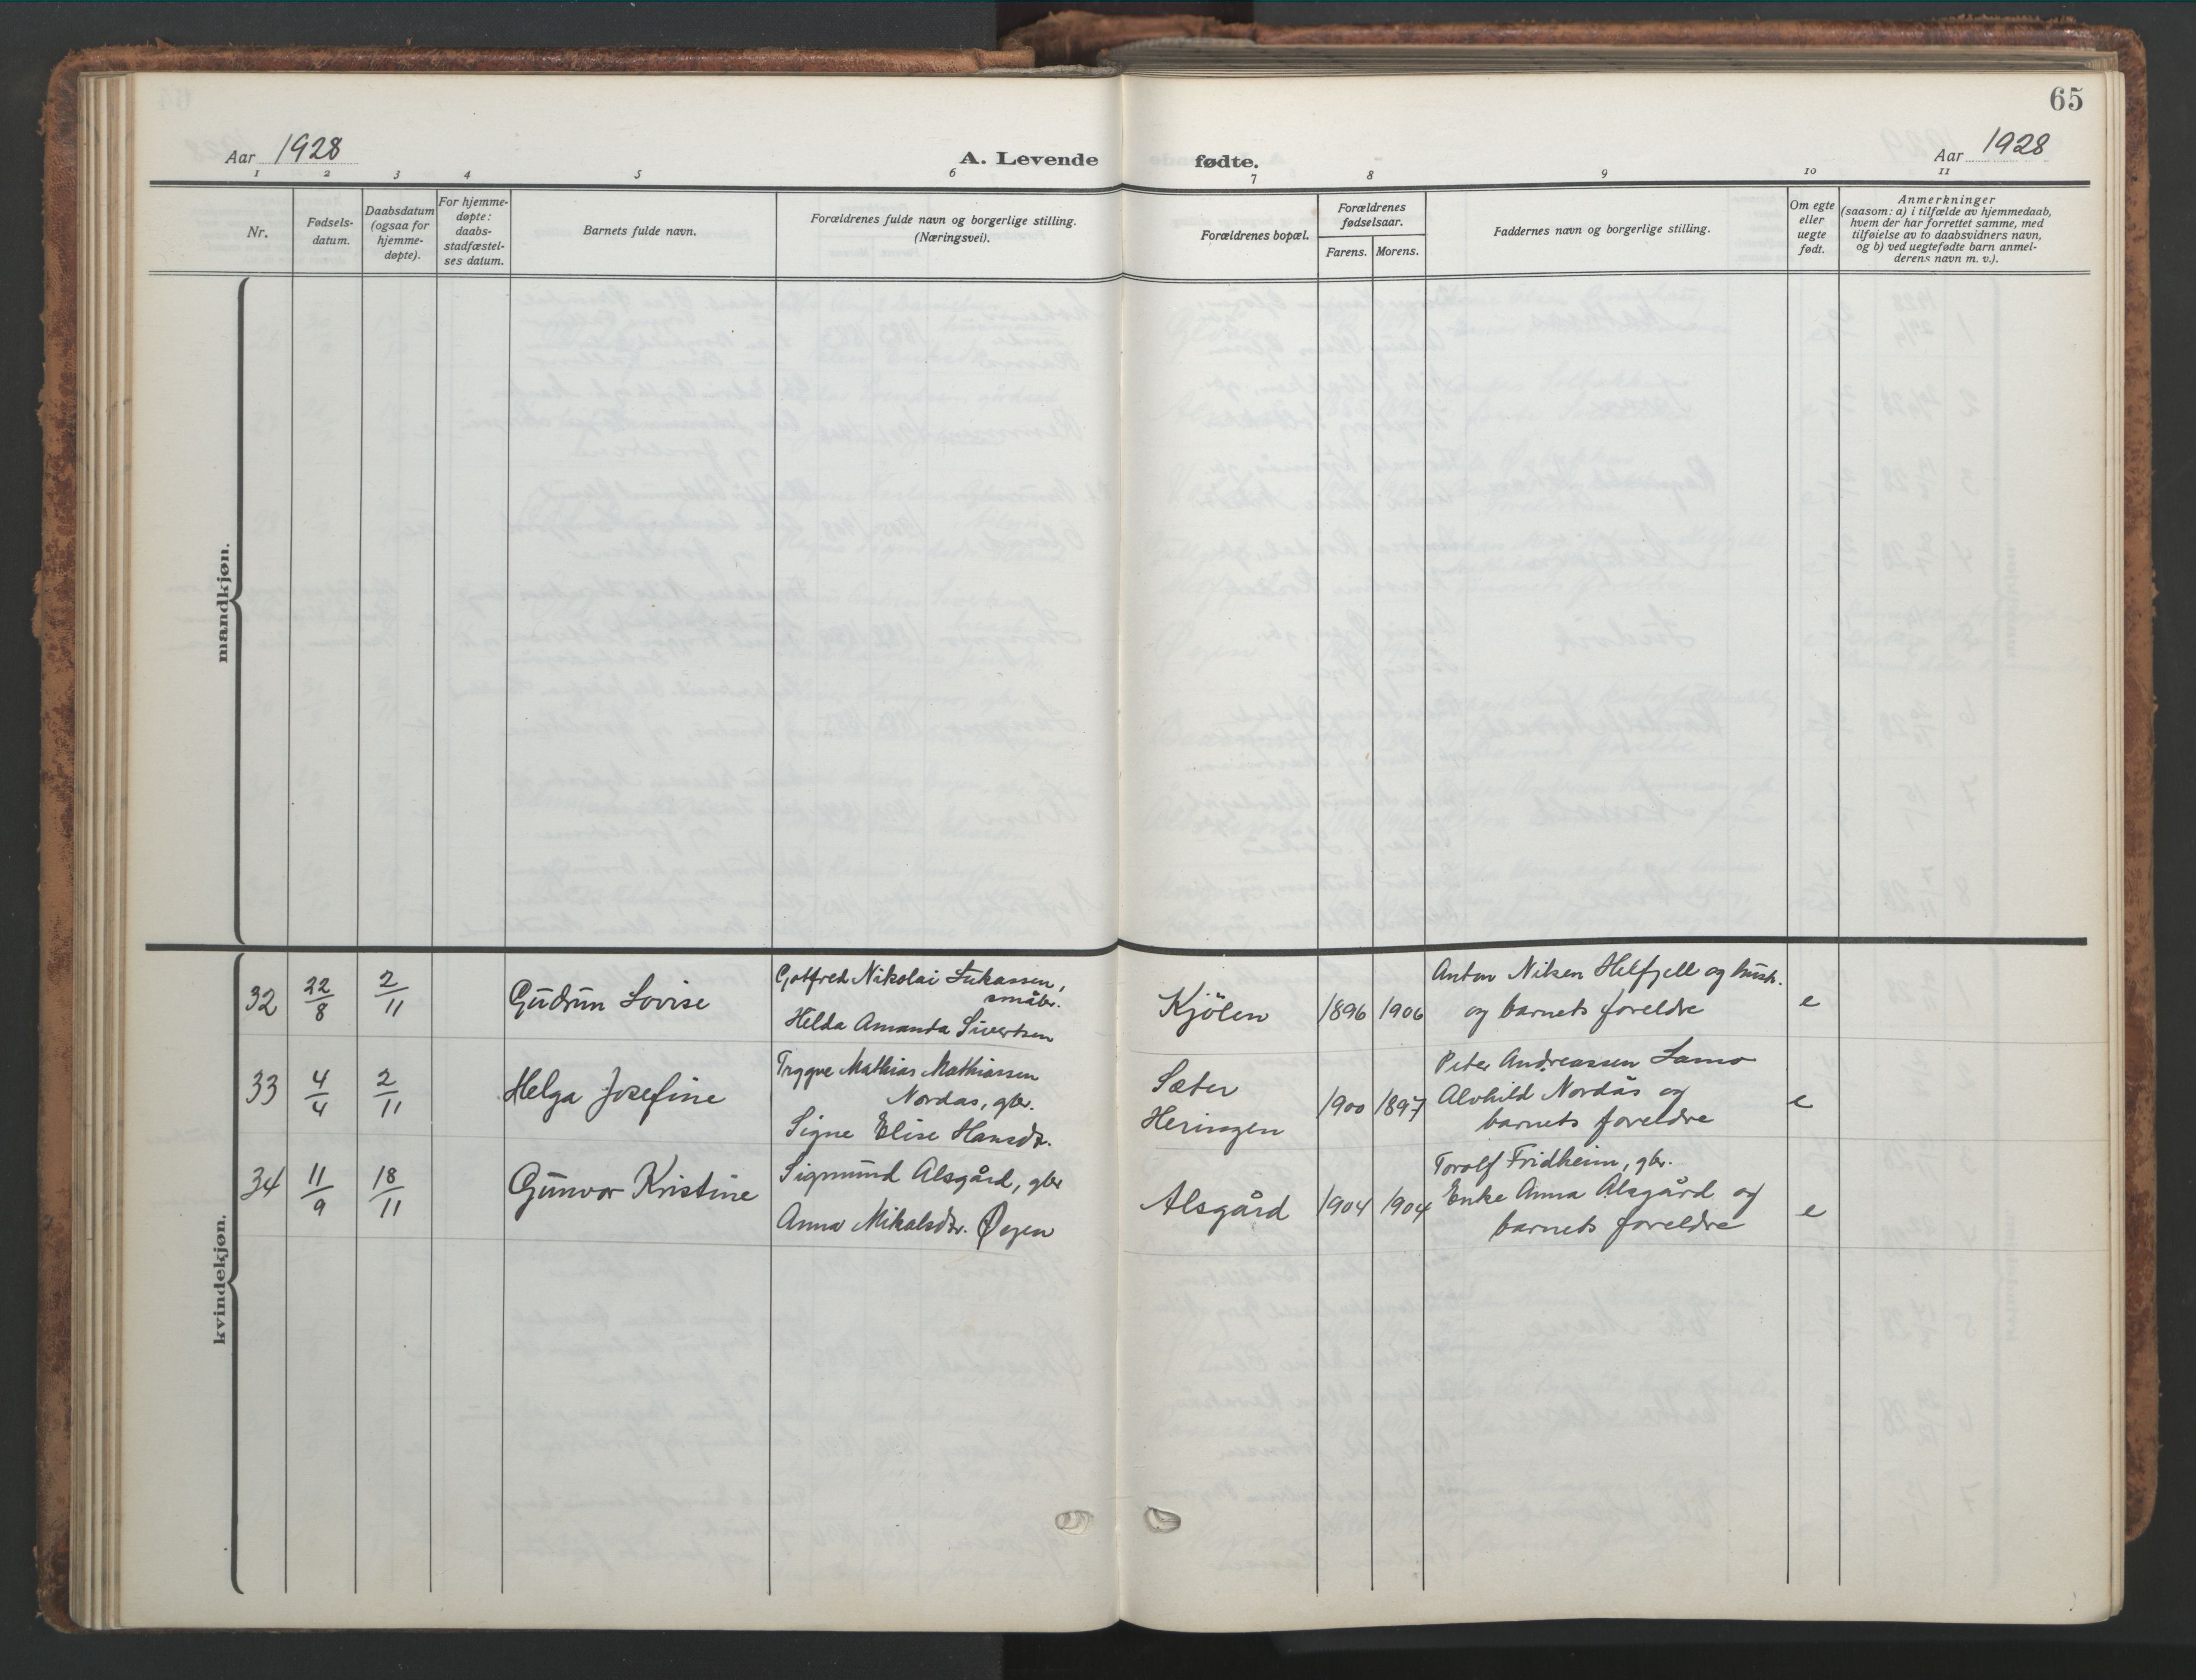 65
Aar 1928
A. Levende fødte.
Aar 1928
1 2 3 4 5 6 7 8 9 10 11
Nr.
Fødsels-
datum.
Daabsdatum
(ogsaa for
hjemme-
døpte).
For hjemme-
døpte:
daabs-
stadfæstel-
ses datum.
Barnets fulde navn.
Forældrenes fulde navn og borgerlige stilling.
(Næringsvei).
Forældrenes bopæl.
Forældrenes
fødselsaar.
Farens. Morens.
Faddernes navn og borgerlige stilling.
Om egte
eller
uegte
født.
Anmerkninger
(saasom: a) i tilfælde av hjemmedaab,
hvem der har forrettet samme, med
tilføielse av to daabsvidners navn,
og b) ved uegtefødte barn anmel-
derens navn m. v.).
mandkjøn.
kvindekjøn.
32 22/8 2/11 Gudrun Lovise
Gotfred Nikolai Lukassen,
småbr.
Hilda Amanda Sivertsen
Kjølen 1896 1906
Anton Nilsen Helfjell og hustr.
og barnets foreldre
e
33 4/4 2/11 Helga Josefine
Trygve Mathias Mathiassen
Nordås, gbr.
Signe Elise Hansdtr.
Sæter
Heringen
1900 1897
Peter Andreassen Lamo
Alvhild Nordås og
barnets foreldre
e
34 11/9 18/11 Gunvor Kristine
Sigmund Alsgård, gbr
Anna Mikalsdtr. Øyen
Alsgård 1904 1904
Torolf Fridheim, gbr.
Enke Anna Alsgård og
barnets foreldre
e